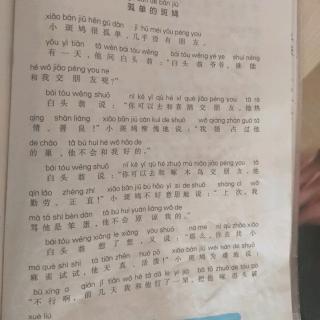 孤单的斑鸠
xiǎo bān jiū hěn gū dān jī hū méi yǒu péng you
小斑鸠很孤单，几乎没有朋友。
yǒu yì tiān tā wèn bái tóu wēng bái tóu wēng yé ye shuí néng
有一天，他问白头翁：“白头翁爷爷，谁能
hé wǒ jiāo péng you ne
和我交朋友呢？”
bái tóu wēng shuō nǐ kě yǐ qù hé xǐ què jiāo péng you tā rè
白头翁说：“你可以去和喜鹊交朋友，他热
qíng shàn liáng xiǎo bān jiū cán kuì de shuō wǒ qiáng zhàn guo tā
情、善良！”小斑鸠惭愧地说：“我强占过他
de cháo tā bú huì hé wǒ hǎo de
的巢，他不会和我好的。”
bái tóu wēng shuō nǐ kě yǐ qù hé zhuó mù niǎo jiāo péng you tā
白头翁说：“你可以去和啄木鸟交朋友，他
qín láo zhèng zhí xiǎo bān jiū bù hǎo yì si de shuō shàng cì wǒ
勤劳、正直！”小斑鸠不好意思地说：“上次，我
mà tā shì bèn dàn tā bú huì yuán liàng wǒ de
骂他是笨蛋，他不会原谅我的。”
bái tóu wēng xiǎng le xiǎng yòu shuō nà me nǐ qù zhǎo xiǎo
白头翁想了想，又说：“那么，你去找小
má què shì shi tā tiān zhēn huó pō xiǎo bān jiū wéi nán de shuō
麻雀试试，他天真、活泼！”小斑鸠为难地说：
bù xíng a qián jǐ tiān wǒ hé tā dǎ le yí jià bǎ tā zhuó de tóu pò
“不行啊，前几天我和他打了一架，把他啄得头破
xuè liú